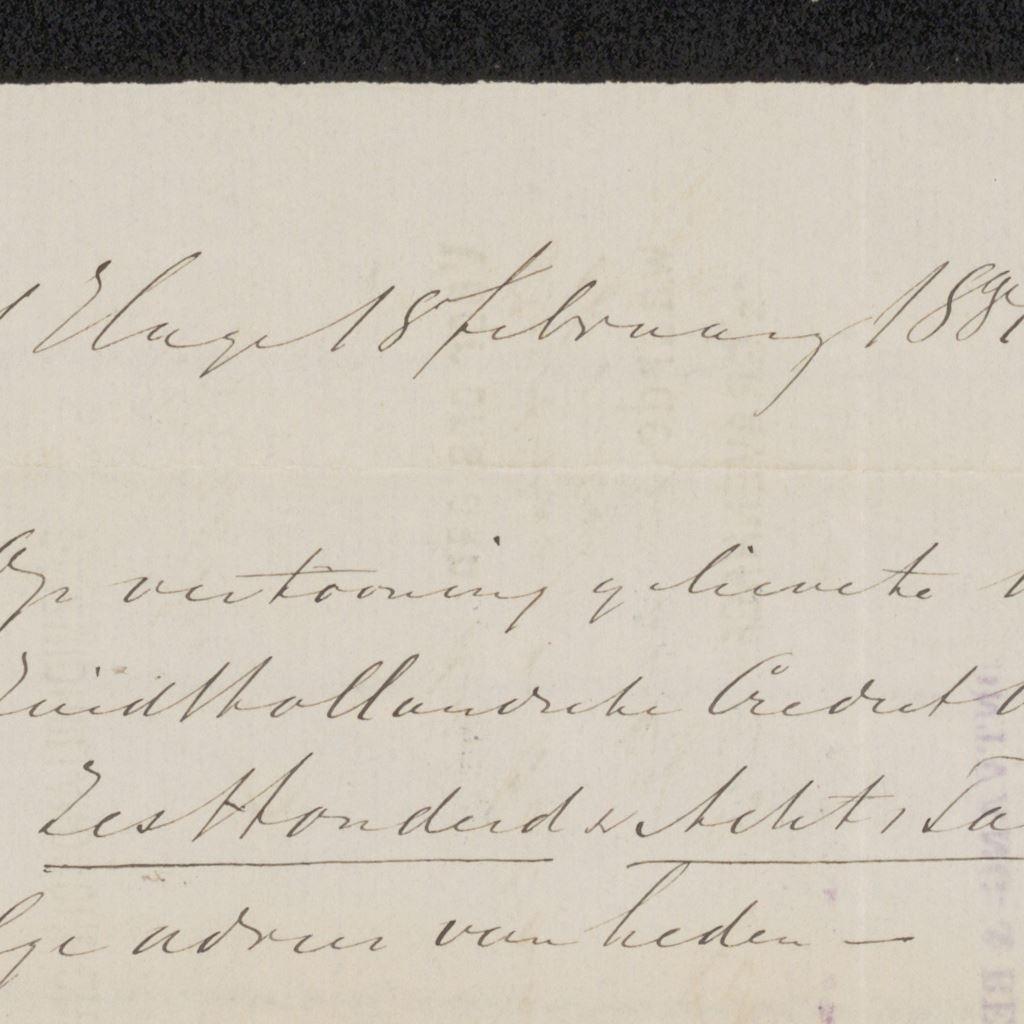 Hage 18 februarij 188
Op vertooning gelievete
Zuidhollandsche Crediet
ZesHonderd & Acht
adres van heden —